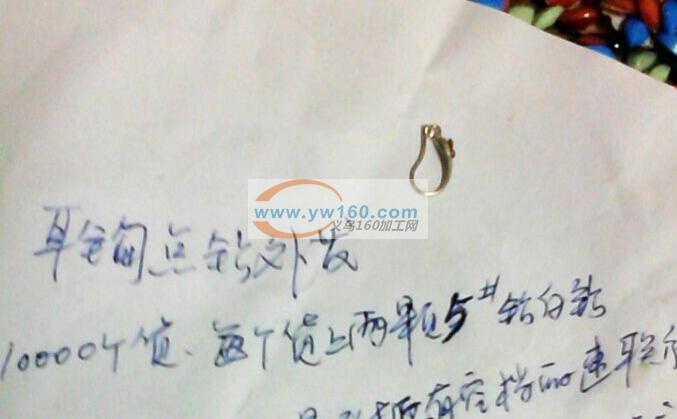 www.yw160.com
义乌160加工网
耳钩点钻外发
10000个货、每个货上两颗5#钻白钻
有空档而速联